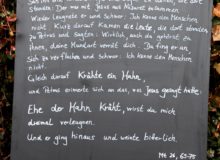 Wieder leugnete er und schwor: Ich kenne den Menschen
nicht! Kurz darauf kamen die Leute, die dort standen
zu Petrus und sagten: Wirklich, auch du gehörst zu
ihnen, deine Mundart verrät dich. Da fing er an,
sich zu verfluchen und schwor: Ich kenne den Menschen
nicht.
Gleich darauf krähte ein Hahn,
und Petrus erinnerte sich an das, was Jesus gesagt hatte:
Ehe der Hahn kräht, wirst du mich
dreimal verleugnen.
Und er ging hinaus und weinte bitterlich.
Mt 26, 69-75